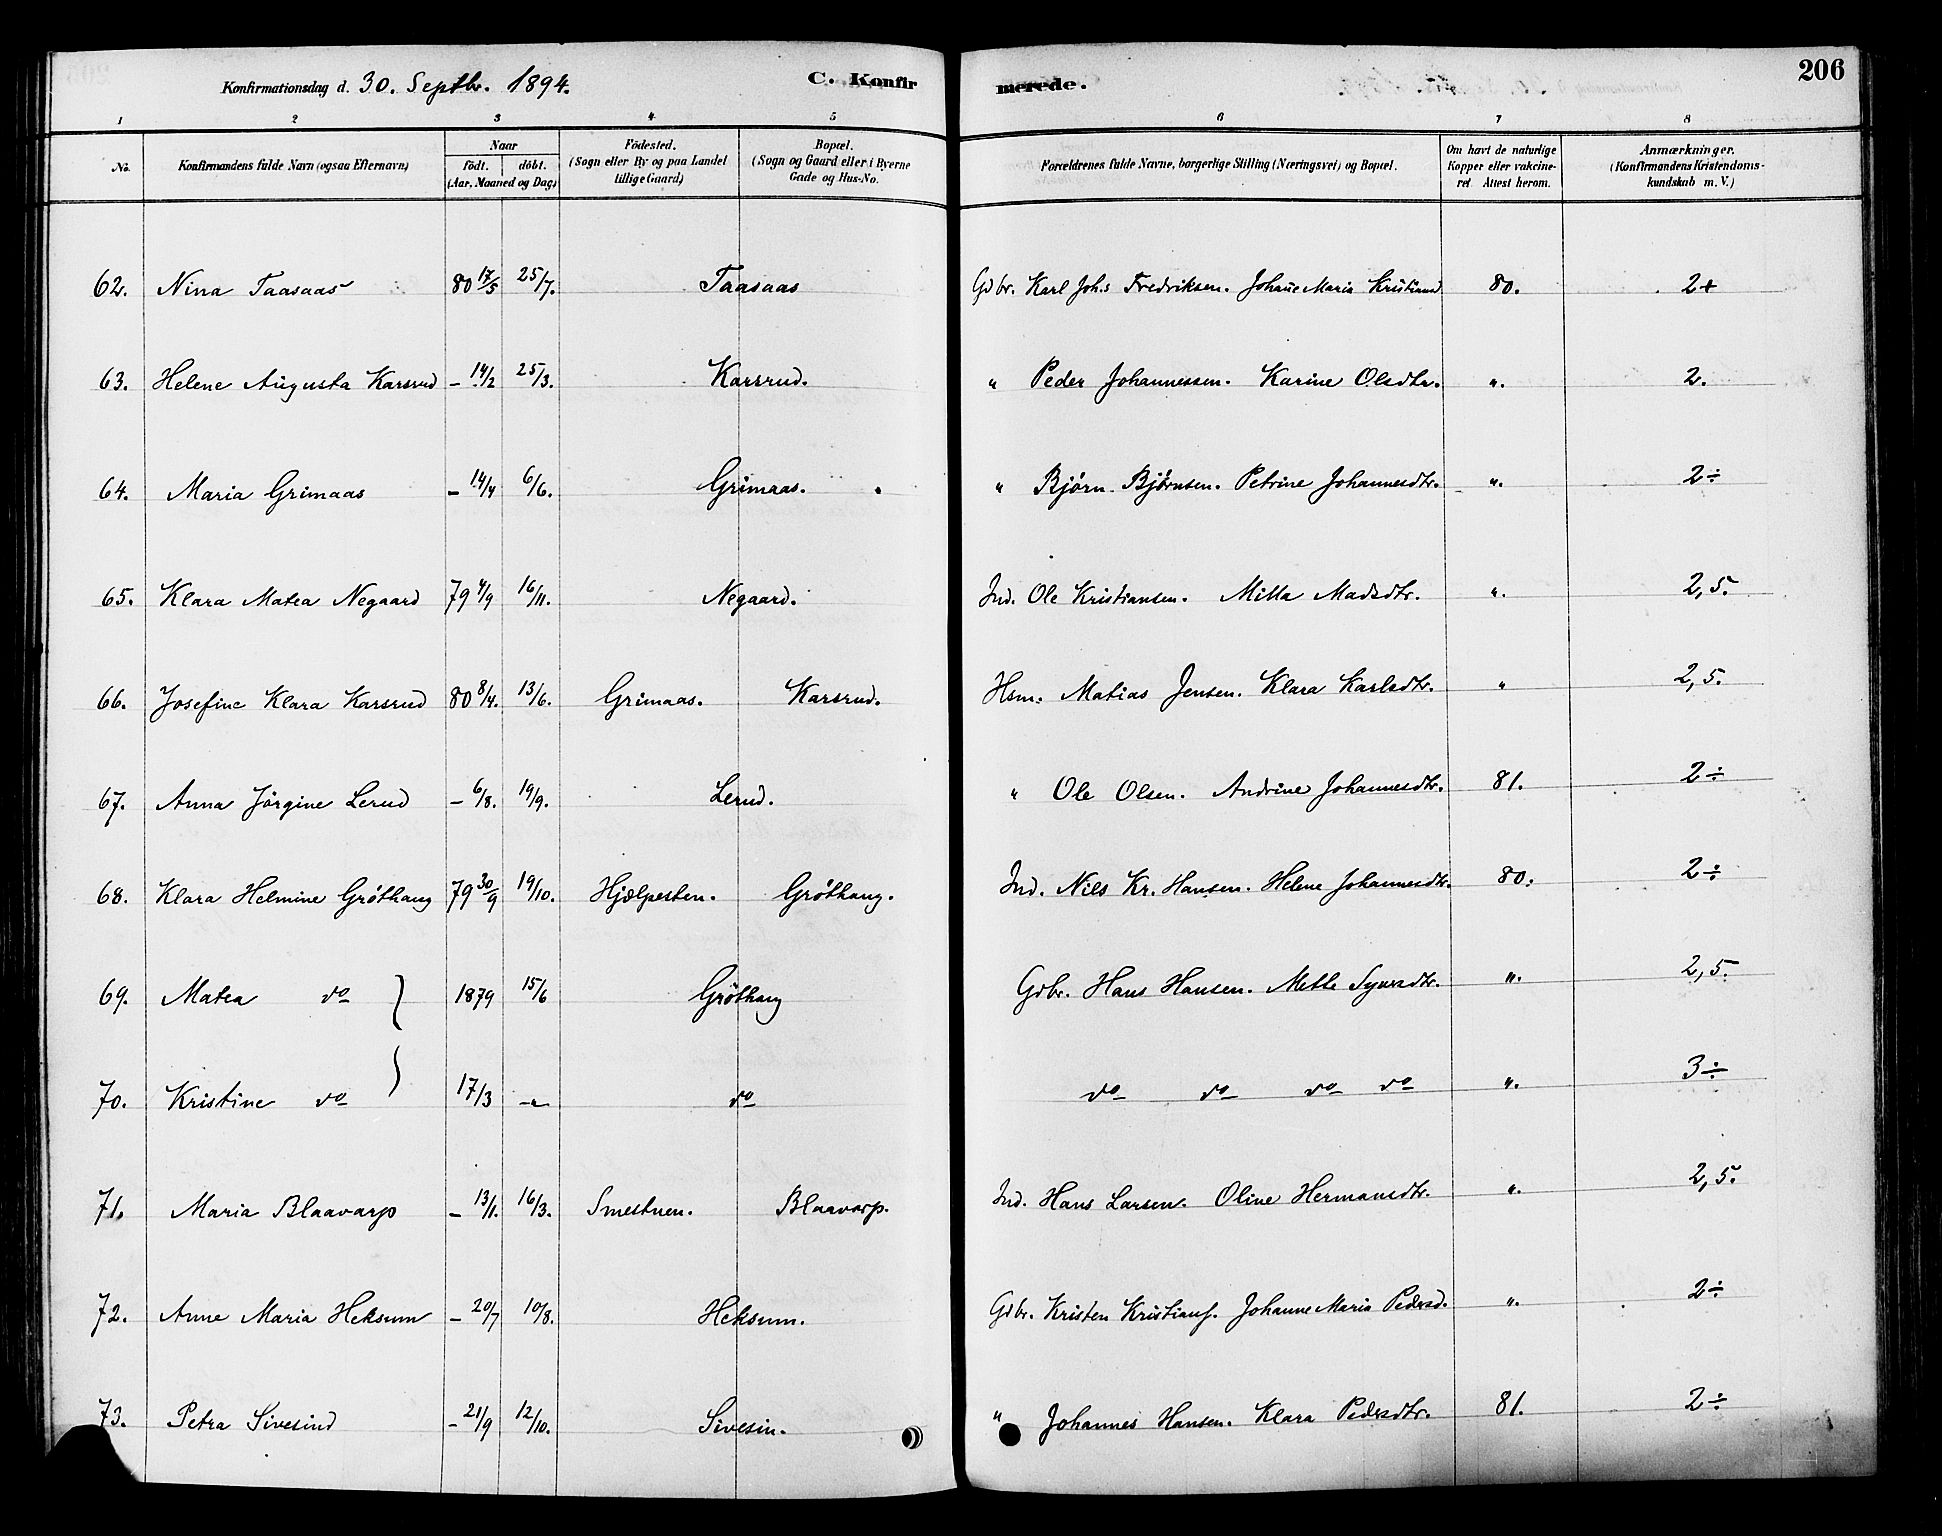 Konfirmationsdag d. 30. Septbr. 1894. C. Konfirmerede. 206
1 2 3 4 5 6 7 8
No. Konfirmandens fulde Navn (ogsaa Efternavn) Naar födt. döbt. (Aar, Maaned og Dag) Födested. (Sogn eller By og paa Landet tillige Gaard) Bopæl. (Sogn og Gaard eller i Byerne Gade og Hus-No. Forældrenes fulde Navne, borgerlige Stilling (Næringsvei) og Bopæl. Om havt de naturlige Kopper eller vakcineret. Attest herom. Anmærkninger. (Konfirmandens Kristendomskundskab m. V.)
62. Nina Taasaas 80 17/5 25/7. Taasaas Gdbr. Karl Johs Fredriksen. Johan̄e Maria Kristiansd 80. 2+
63. Helene Augusta Karsrud – 14/2 25/3. Karsrud. " Peder Johannessen. Karine Olsdtr. ". 2.
64. Maria Grimaas – 14/4 6/6. Grimaas. " Bjørn Bjørnsen. Petrine Johannesdtr. ". 2÷
65. Klara Matea Negaard 79 4/9 16/11. Negaard. Ind. Ole Kristiansen. Milla Madsdtr. ". 2,5.
66. Josefine Klara Karsrud 80 8/4. 13/6. Grimaas. Karsrud. Hsm. Matias Jensen. Klara Karlsdtr. " 2,5.
67. Anna Jörgine Lerud – 6/8. 19/9. Lerud. " Ole Olsen. Andrine Johannesdtr. 81. 2÷
68. Klara Helmine Gröthaug 79 30/9 19/10. Hjælpesten. Gröthaug. Ind. Nils Kr. Hansen. Helene Johannesdtr. 80. 2÷
69. Matea do } 1879 15/6 Gröthaug Gdbr. Hans Hansen. Mette Syversdtr. ". 2,5.
70. Kristine do } 17/3 –"– do do do do do ". 3÷
71. Maria Blaavarp – 13/1. 16/3. Smestuen. Blaavarp. Ind. Hans Larsen. Oline Hermansdtr. ". 2,5.
72. Anne Maria Heksum – 20/7 10/8. Heksum. Gdbr. Kristen Kristians. Johanne Maria Pedersd. ". 2÷
73. Petra Sivesind – 21/9 12/10. Sivesin. " Johannes Hansen. Klara Pedersdtr. 81. 2÷